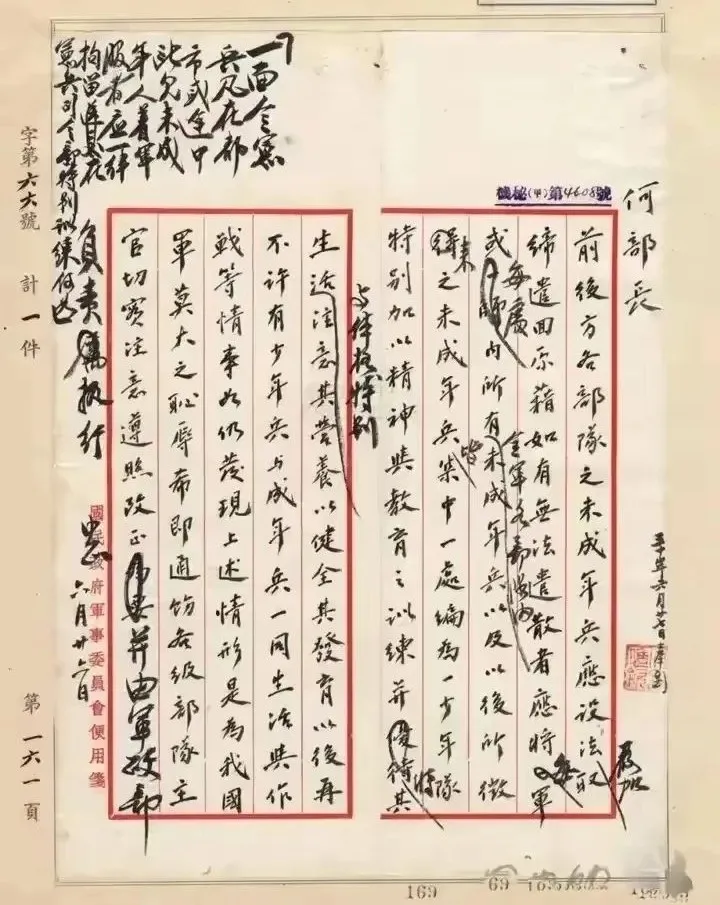 機秘(甲)第4608號
何部長
前後方各部隊之未成年兵應設法取
締遣回原籍如有無法遣散者應將每軍
或每師內所有未成年兵以及以後所徵
得之未成年兵集中一處編為一少年隊
特別加以精神與教育之訓練并優待其
生活注意其營養以健全其發育以後再
不許有少年兵與成年兵一同生活與作
戰等情事如仍發現上述情形是為我國
軍莫大之恥辱希即通飭各級部隊主
官切實注意遵照改正為要并由軍政部
負責執行
六月廿六日
一面令憲
兵凡在都
市或途中
此凡未成
年人着軍
服者應一律
拘留
憲兵司令部特別訓練何如
國民政府軍事委員會便用箋
字第六六號
計一件
第一六一頁
169
69